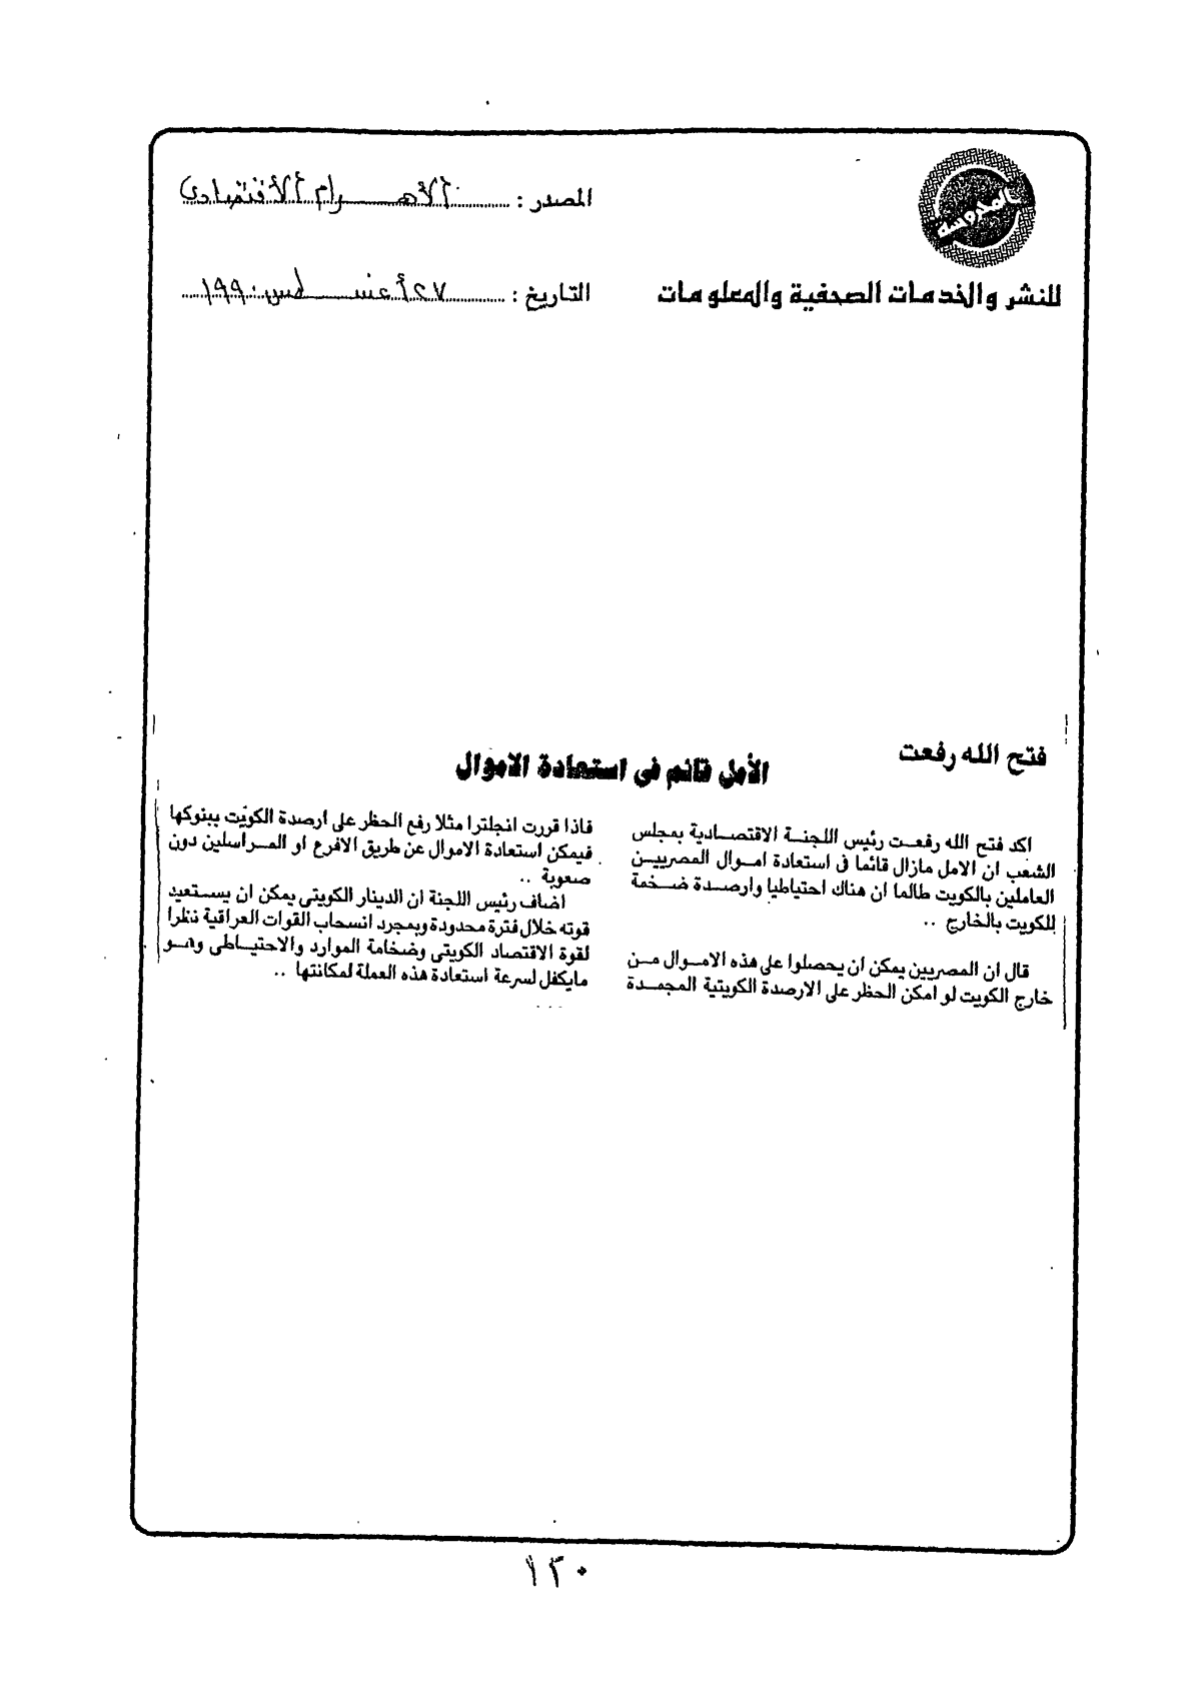 المحروسة
للنشر والخدمات الصحفية والمعلومات
المصدر : الأهرام الأقتصادى
التاريخ : ٢٧ أغسطس ١٩٩٠
فتح الله رفعت
الأمل قائم فى استعادة الاموال
اكد فتح الله رفعت رئيس اللجنة الاقتصادية بمجلس
الشعب ان الامل مازال قائما فى استعادة اموال المصريين
العاملين بالكويت طالما ان هناك احتياطيا وارصدة ضخمة
للكويت بالخارج ..
قال ان المصريين يمكن ان يحصلوا على هذه الاموال من
خارج الكويت لو امكن الحظر على الارصدة الكويتية المجمدة
فاذا قررت انجلترا مثلا رفع الحظر على ارصدة الكويت ببنوكها
فيمكن استعادة الاموال عن طريق الافرع او المراسلين دون
صعوبة ..
اضاف رئيس اللجنة ان الدينار الكويتى يمكن ان يستعيد
قوته خلال فترة محدودة وبمجرد انسحاب القوات العراقية نظرا
لقوة الاقتصاد الكويتى وضخامة الموارد والاحتياطى وهو
مايكفل لسرعة استعادة هذه العملة لمكانتها ..
١٣٠